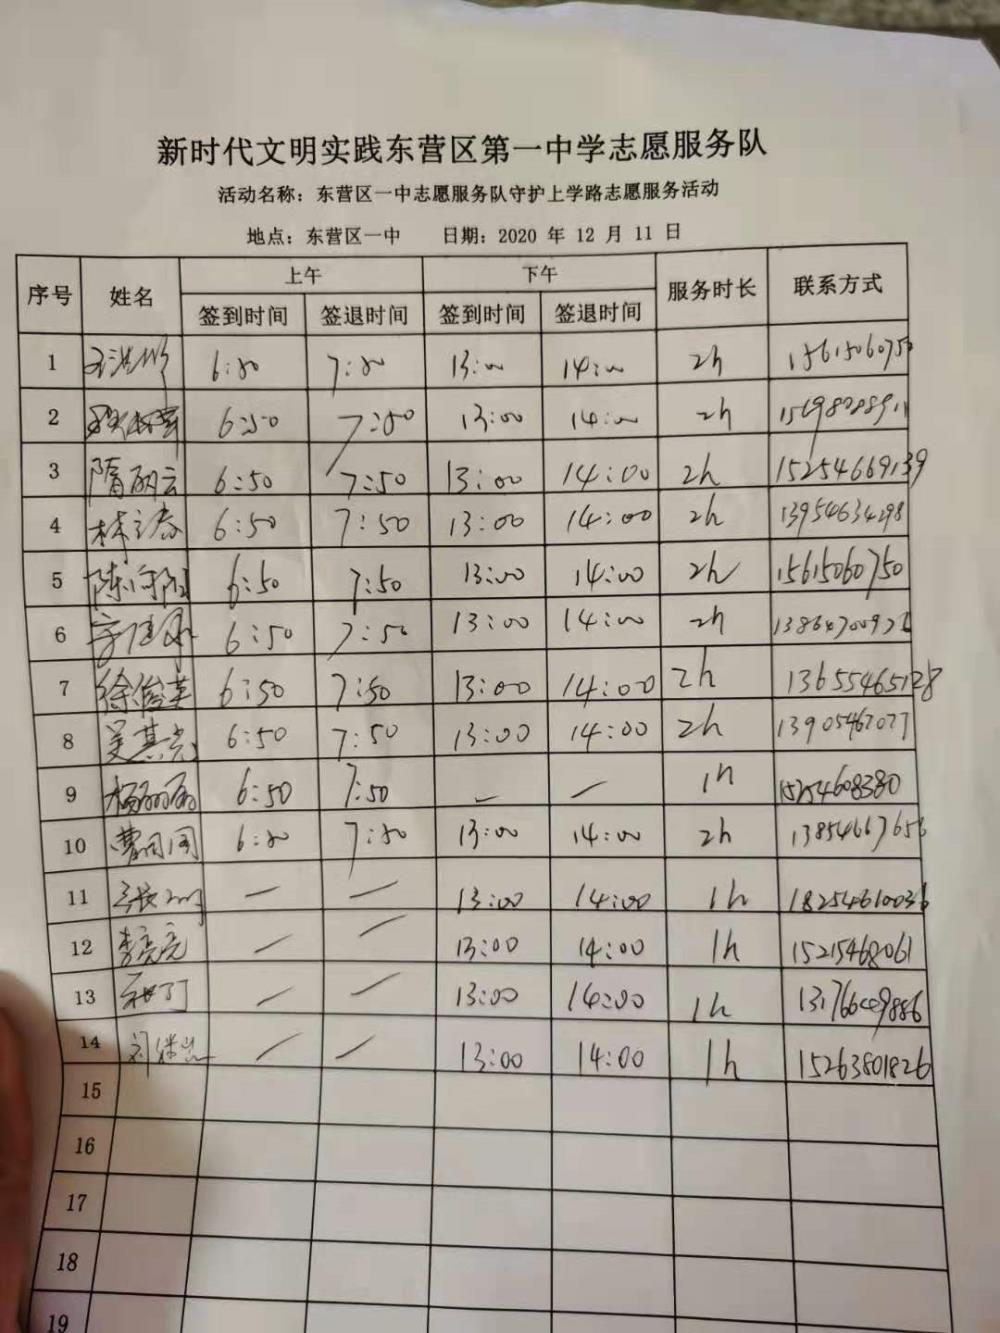 新时代文明实践东营区第一中学志愿服务队
活动名称：东营区一中志愿服务队守护上学路志愿服务活动
地点：东营区一中 日期：2020 年 12 月 11 日
序号 姓名 上午 下午 服务时长 联系方式
签到时间 签退时间 签到时间 签退时间
1 6:50 7:50 13:00 14:00 2h 15615060750
2 6:50 7:50 13:00 14:00 2h
3 隋丽云 6:50 7:50 13:00 14:00 2h 15254669139
4 林立春 6:50 7:50 13:00 14:00 2h 13954634298
5 6:50 7:50 13:00 14:00 2h 15615060750
6 6:50 7:50 13:00 14:00 2h
7 徐俊英 6:50 7:50 13:00 14:00 2h 13655465128
8 吴其亮 6:50 7:50 13:00 14:00 2h 13905467077
9 杨丽丽 6:50 7:50 — — 1h 15254608380
10 6:50 7:50 13:00 14:00 2h 13854667656
11 — — 13:00 14:00 1h 18254610036
12 李亮亮 — — 13:00 14:00 1h 15215468061
13 — — 13:00 14:00 1h
14 — — 13:00 14:00 1h 15263801826
15
16
17
18
19